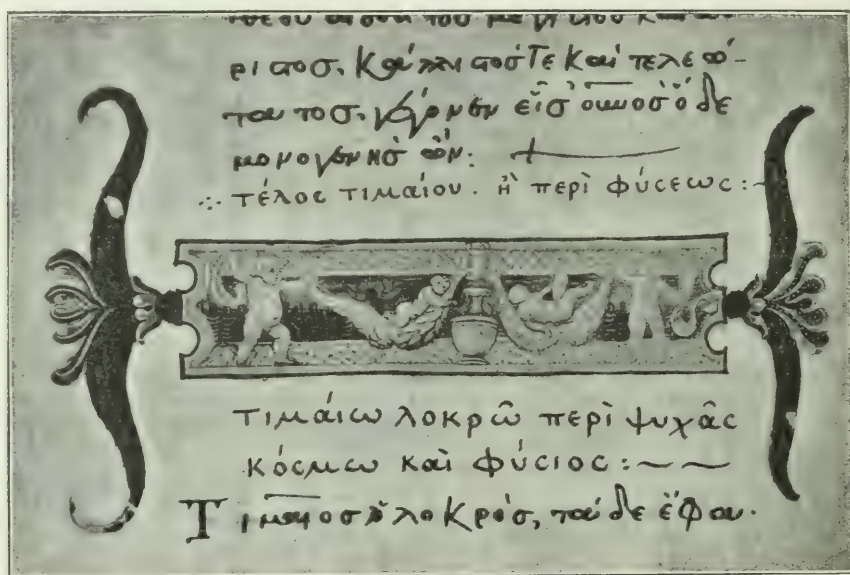 μέγιστος καὶ ἄ
ριστος. κάλλιστός τε καὶ τελεώ-
τατος. γέγονεν εἷς οὐνος ὅδε
μονογενὴς ὤν:
τέλος τιμαίου. ἢ περὶ φύσεως:~
τιμαίω λοκρῶ περὶ ψυχᾶς
κόσμω καὶ φύσιος:~~
Τίμαιος ὁ λοκρός, τάδε ἔφα.